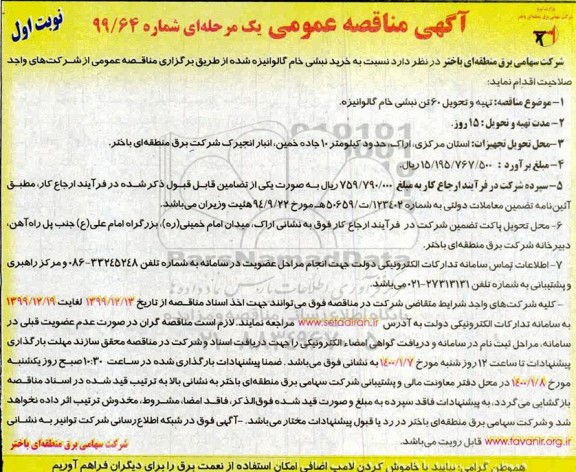 آگهی مناقصه عمومی یک مرحله‌ای شماره ۹۹/۶۴
نوبت اول
شرکت سهامی برق منطقه‌ای باختر در نظر دارد نسبت به خرید نبشی خام گالوانیزه شده از طریق برگزاری مناقصه عمومی از شرکت‌های واجد
صلاحیت اقدام نماید:
۱- موضوع مناقصه: تهیه و تحویل ۶۰ تن نبشی خام گالوانیزه.
۲- مدت تهیه و تحویل: ۱۵ روز.
۳- محل تحویل تجهیزات: استان مرکزی، اراک، حدود کیلومتر ۱۰ جاده خمین، انبار انجیرک شرکت برق منطقه‌ای باختر.
۴- مبلغ برآورد: ۱۵/۱۹۵/۷۶۷/۵۰۰ ریال.
۵- سپرده شرکت در فرآیند ارجاع کار به مبلغ ۷۵۹/۷۹۰/۰۰۰ ریال به صورت یکی از تضامین قابل قبول ذکر شده در فرآیند ارجاع کار، مطابق
آئین‌نامه تضمین معاملات دولتی به شماره ۱۲۳۴۰۲/ت۵۰۶۵۹هـ مورخ ۹۴/۹/۲۲ هئیت وزیران می‌باشد.
۶- محل تحویل پاکت تضمین شرکت در فرآیند ارجاع کار فوق به نشانی اراک، میدان امام خمینی(ره)، بزرگراه امام علی(ع) جنب پل راه‌آهن،
دبیرخانه شرکت برق منطقه‌ای باختر.
۷- اطلاعات تماس سامانه تدارکات الکترونیکی دولت جهت انجام مراحل عضویت در سامانه به شماره تلفن ۳۳۲۴۵۲۴۸-۰۸۶ و مرکز راهبری
و پشتیبانی به شماره تلفن ۲۷۳۱۳۱۳۱-۰۲۱ می‌باشد.
- کلیه شرکت‌های واجد شرایط متقاضی شرکت در مناقصه فوق می‌توانند جهت اخذ اسناد مناقصه از تاریخ ۱۳۹۹/۱۲/۱۳ لغایت ۱۳۹۹/۱۲/۱۹
به سامانه تدارکات الکترونیکی دولت به آدرس www.setadiran.ir مراجعه نمایند. لازم است مناقصه گران در صورت عدم عضویت قبلی در
سامانه، مراحل ثبت نام در سامانه و دریافت گواهی امضاء الکترونیکی را جهت دریافت اسناد و شرکت در مناقصه محقق سازند مهلت بارگذاری
پیشنهادات تا ساعت ۱۲ روز شنبه مورخ ۱۴۰۰/۱/۷ به نشانی فوق می‌باشد. ضمنا پیشنهادات بارگذاری شده در ساعت ۱۰:۳۰ صبح روز یکشنبه
مورخ ۱۴۰۰/۱/۸ در محل دفتر معاونت مالی و پشتیبانی شرکت سهامی برق منطقه‌ای باختر به نشانی بالا به ترتیب قید شده در اسناد مناقصه
بازگشایی می‌گردد. به پیشنهادات فاقد سپرده به مبلغ و صورت قید شده فوق‌الذکر، فاقد امضا، مشروط، مخدوش ترتیب اثر داده نخواهد
شد و شرکت سهامی برق منطقه‌ای باختر در رد یا قبول پیشنهادات مختار می‌باشد. -آگهی فوق در شبکه اطلاع‌رسانی شرکت توانیر به نشانی
www.tavanir.org.ir قابل رویت می‌باشد.
شرکت سهامی برق منطقه‌ای باختر
هموطن گرامی: بیایید با خاموش کردن لامپ اضافی امکان استفاده از نعمت برق را برای دیگران فراهم آوریم